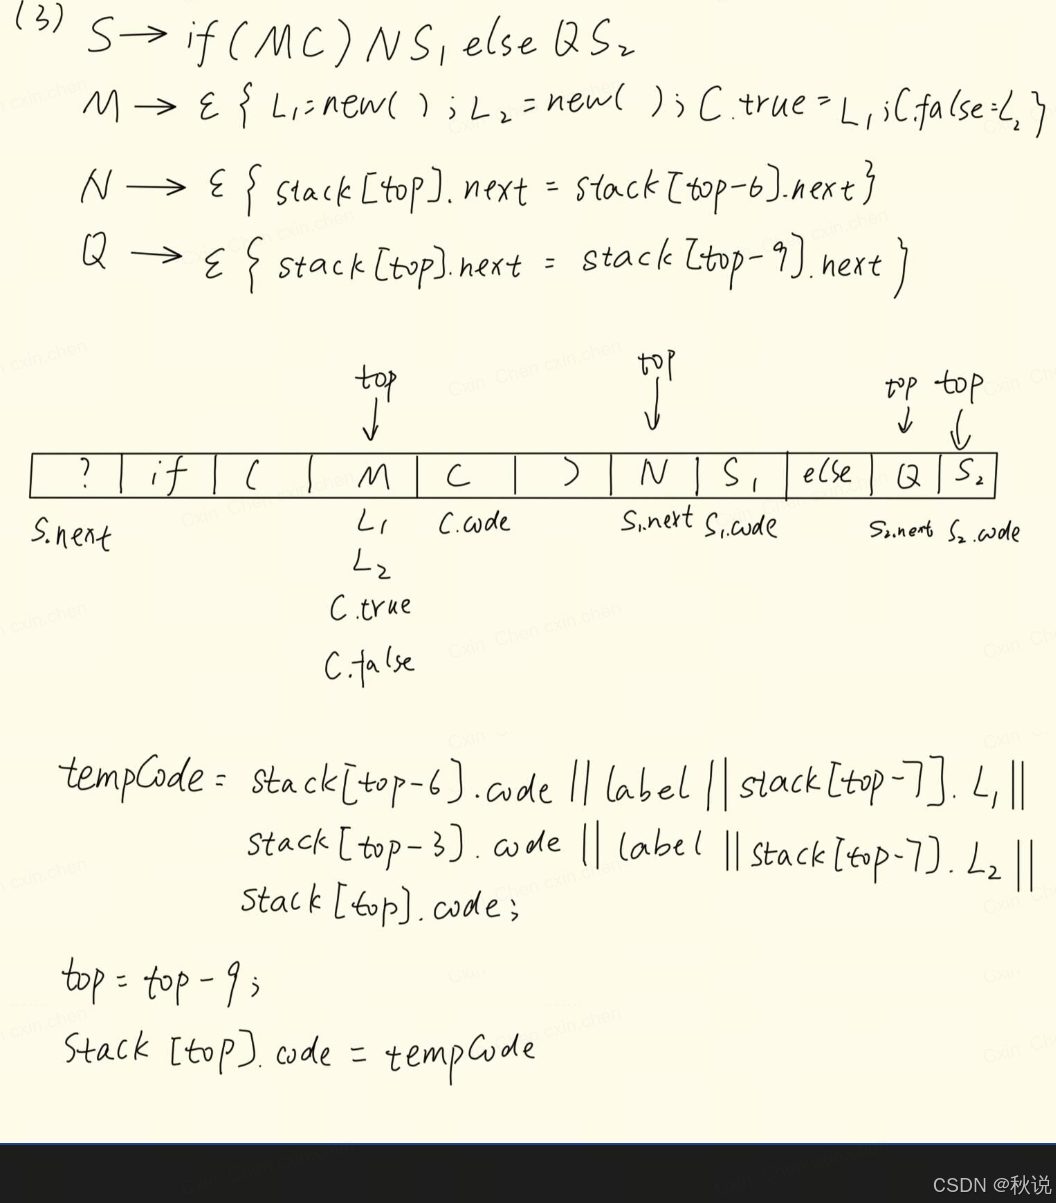 (3) S → if (MC) N S₁ else Q S₂
M → ε { L₁=new( ) ; L₂=new( ) ; C.true=L₁ ; C.false=L₂ }
N → ε { stack[top].next = stack[top-6].next }
Q → ε { stack[top].next = stack[top-9].next }
top top top top
? if ( M C ) N S₁ else Q S₂
S.next L₁ C.code S₁.next S₁.code S₂.next S₂.code
L₂
C.true
C.false
tempCode = stack[top-6].code || label || stack[top-7].L₁ ||
stack[top-3].code || label || stack[top-7].L₂ ||
stack[top].code;
top = top-9;
Stack [top].code = tempCode
CSDN @秋说